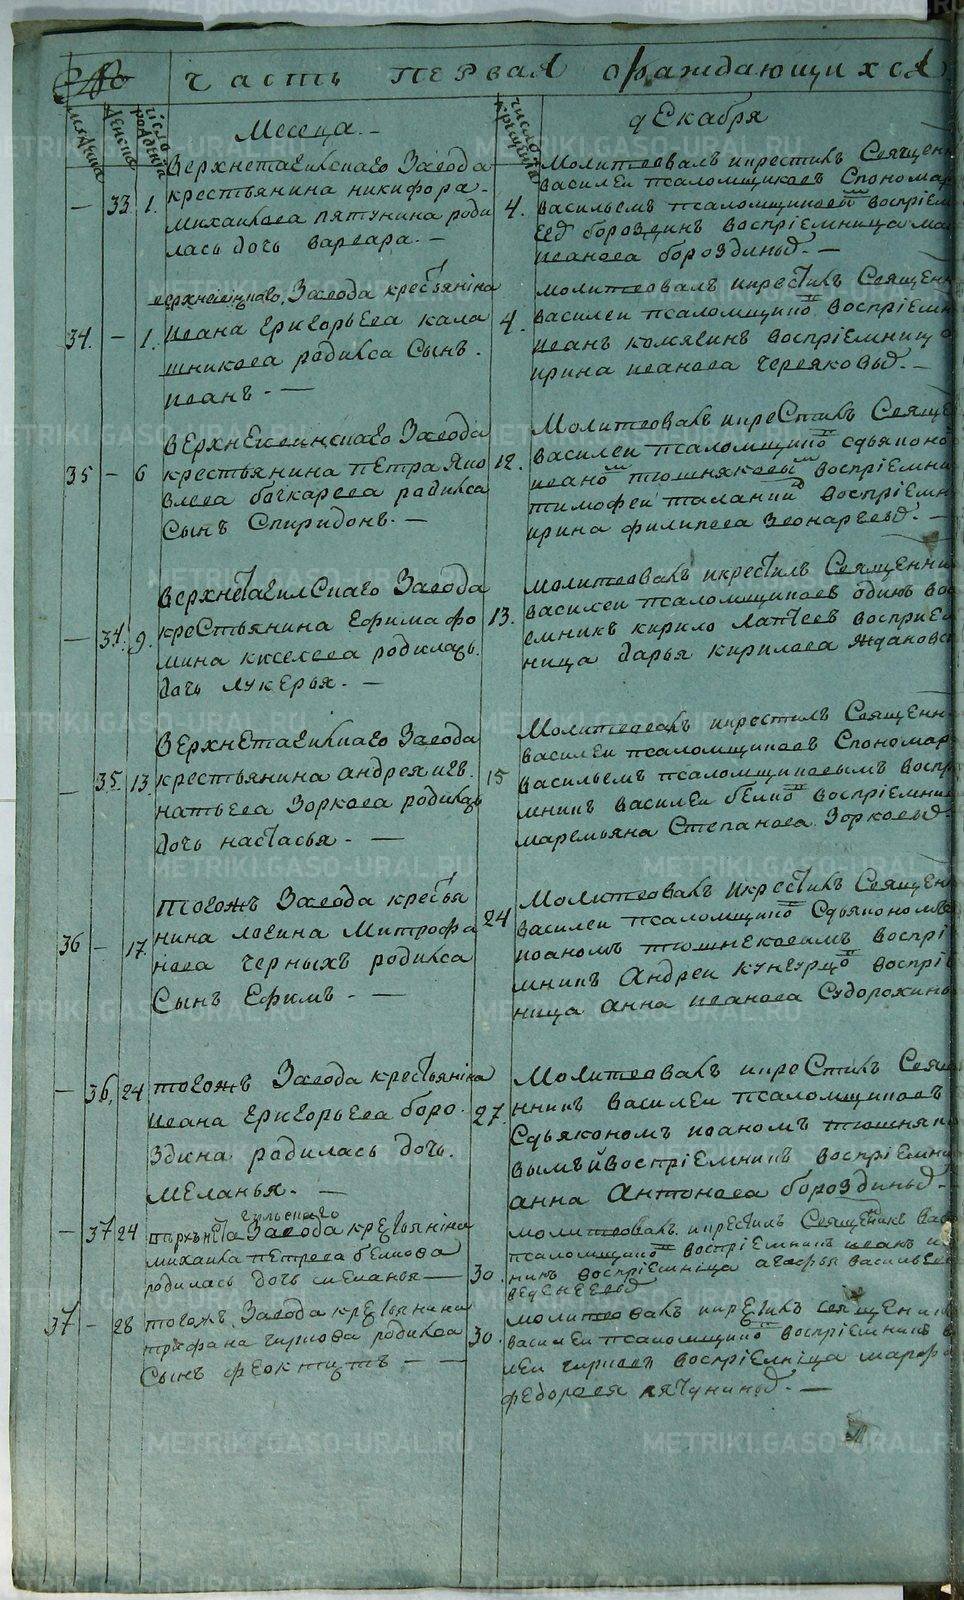 часть первая ораждающихся
Месеца.-
декабря
мужска
женска
число рождения
число крещения
- 33. 1.
Верхнетагилскаго Завода
крестьянина никифора
михаилова пятунина роди
лась дочь варвара. -
4.
Молитвовалъ икрестилъ Священн
василеи псаломщиковъ Спономар
васильемъ псаломщиковы воспрiем
бороздинъ воспрiемница ма
иванова бороздины. -
34. - 1.
Завода крестьянiна
ивана григорьева кала
шникова радился Сынъ.
иванъ. -
4.
молитвовалъ икрестилъ Священ
василеи псаломщико воспрiемн
иванъ комягинъ воспрiемниц
ирина иванова червяковы. -
35 - 6
Верхнеивинскаго Завода
крестьянина петра яко
влева бочкарева радился
Сынъ Спиридонъ. -
12.
Молитвовалъ икрестилъ Свяще
василеи псаломщико сдьяконо
ивано тюшняковы воспрiемни
тимофеи таланки воспрiемн
ирина филипева Зеонаревы. -
- 34. 9.
верхнетагилскаго Завода
крестьянина Ефима фо
мина киселева родилась.
дочь лукерья. -
13.
молитвовалъ икрестилъ Священни
василеи псаломщиковъ одинъ вос
емникъ кирило лаптевъ восприем
ница дарья кирилова ждановс
- 35. 13.
Верхнетагилскаго Завода
крестьянина андрея игн.
натьева Зоркова родилась
дочь настасья. -
15
Молитвовалъ икрестилъ Священн
василеи псаломщиковъ Спономар
васильемъ псаломщиковымъ воспр
мникъ василеи белко воспрiемни
маремьяна Степанова Зорковы.
36 - 17.
тогожъ Завода крестья
нина логина Митрофа
нова черныхъ родился
Сынъ Ефимъ. -
24
Молитвовалъ икрестилъ Священ
василеи псаломщико Сдьяконом
иоаномъ тюшнековымъ воспрi
мникъ Андреи кунгурцо воспрi
ница анна иванова Судорохины
- 36. 24
тогожъ Завода крестьянiна
ивана григорьева боро.
здина радилась дочь.
меланья. -
27.
Молитвовалъ икрестилъ Свяще
нникъ василеи псаломщиковъ
Сдьякономъ иоаномъ тюшняко
вымъ ивоспрiемникъ воспрiемни
анна Антонова бороздины. -
- 37 24
гильскаго
Завода крестьянiна
михаила петрова белкова
родилась дочь меланья -
30.
молитвовалъ икрестилъ Священикъ ва
псаломщико воспрiемникъ иванъ
нинъ воспрiемнiца агафья васильев
веденеевы
37 - 28
тогожъ Завода крестьянина
трифана чиркова родился
Сынъ феоктистъ - -
30.
молитвовалъ икрестилъ священик
василеи псаломщико воспрiемникъ
леи чирковъ воспрiемнiца марфа
федорова пятунины. -
METRIKI.GASO-URAL.RU